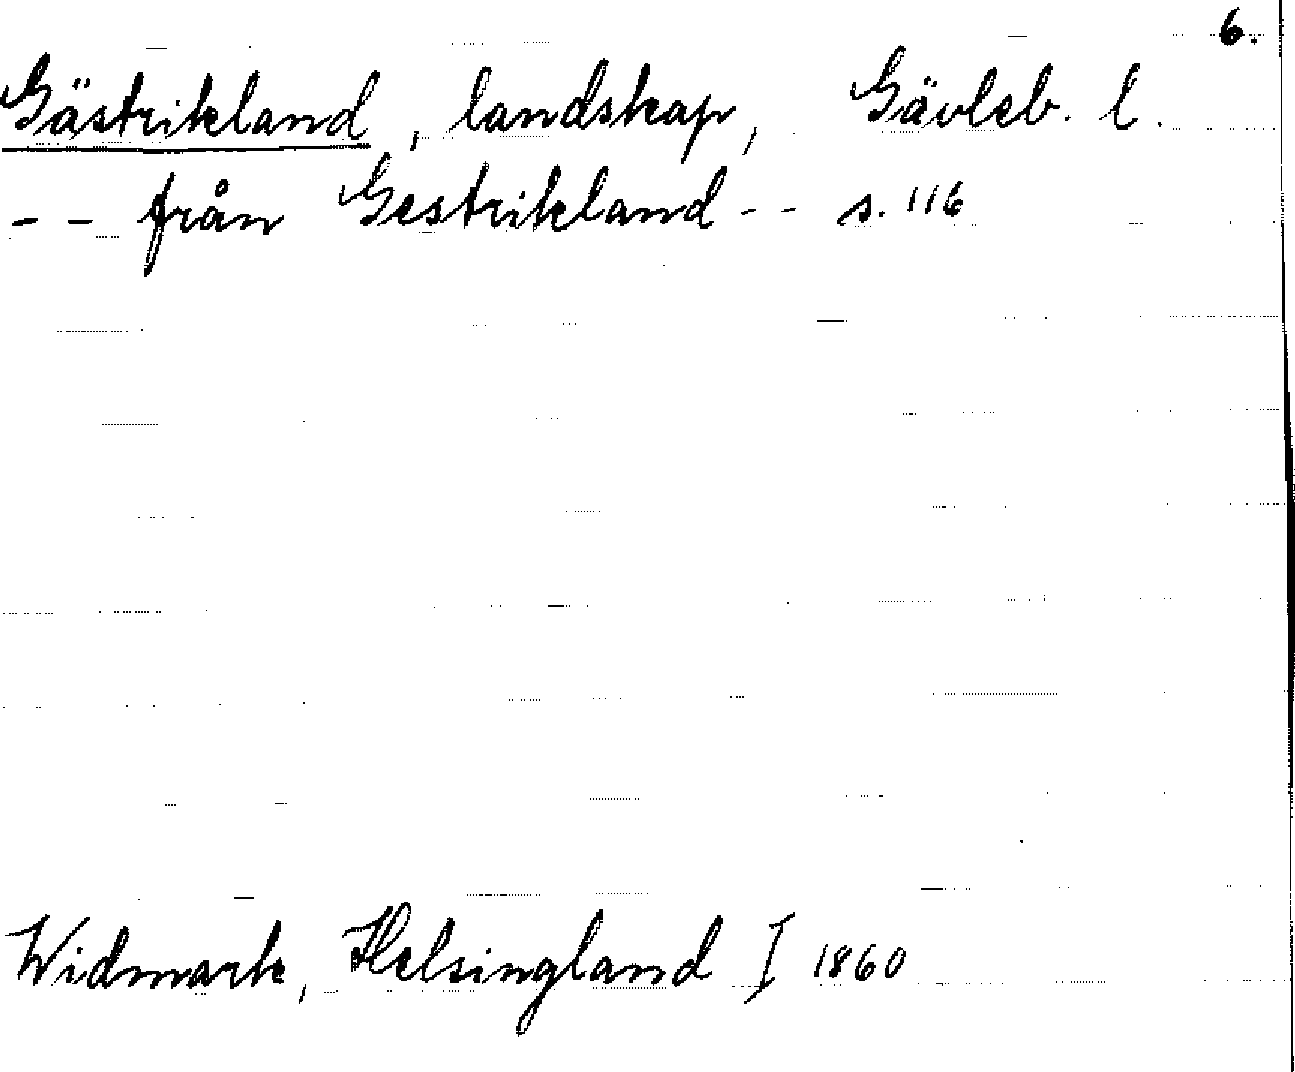 6.
Gästrikland, landskap, Gävleb. l.
- - från Gestrikland - - s. 116
Widmark, Helsingland I 1860